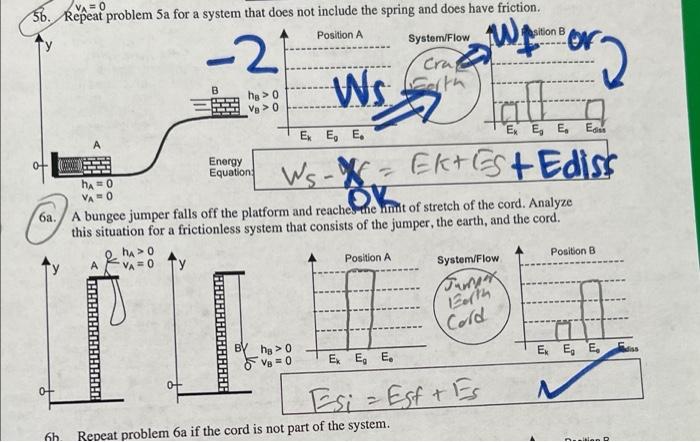 vA = 0
5b. Repeat problem 5a for a system that does not include the spring and does have friction.
y
-2
Position A
System/Flow
Wf
Position B
or
B
hB > 0
vB > 0
Ws
Earth
Ek Eg Ee
Ek Eg Ee Ediss
A
0
hA = 0
vA = 0
Energy
Equation:
Ws - Wf = Ek + Eg + Ediss
OK
6a. A bungee jumper falls off the platform and reaches the limit of stretch of the cord. Analyze
this situation for a frictionless system that consists of the jumper, the earth, and the cord.
y
A
hA > 0
vA = 0
y
Position A
System/Flow
Position B
Jumper
Earth
Cord
B
hB > 0
vB = 0
Ek Eg Ee
Ek Eg Ee Ediss
0
0
6b. Repeat problem 6a if the cord is not part of the system.